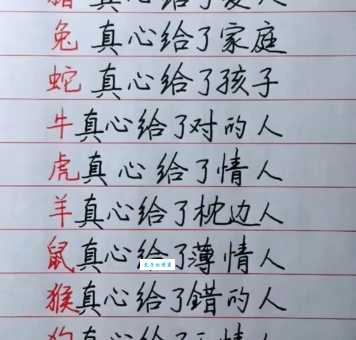 猪真心给了爱人
兔真心给了家庭
蛇真心给了孩子
牛真心给了对的人
虎真心给了情人
羊真心给了枕边人
鼠真心给了薄情人
猴真心给了錯的人
狗真心给了